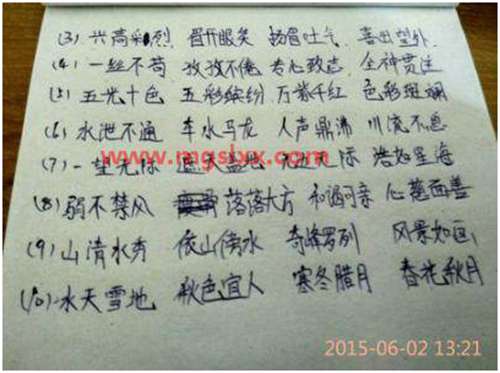 (3) 兴高彩烈 眉开眼笑 扬眉吐气 喜出望外
(4) 一丝不苟 孜孜不倦 专心致志 全神贯注
(5) 五光十色 五彩缤纷 万紫千红 色彩斑斓
(6) 水泄不通 车水马龙 人声鼎沸 川流不息
(7) 一望无际 无边无际 浩如星海
www.mgslxx.com
(8) 弱不禁风 落落大方 和谒可亲 心慈面善
(9) 山清水秀 依山傍水 奇峰罗列 风景如画
(10) 水天雪地 秋色宜人 寒冬腊月 春花秋月
2015-06-02 13:21